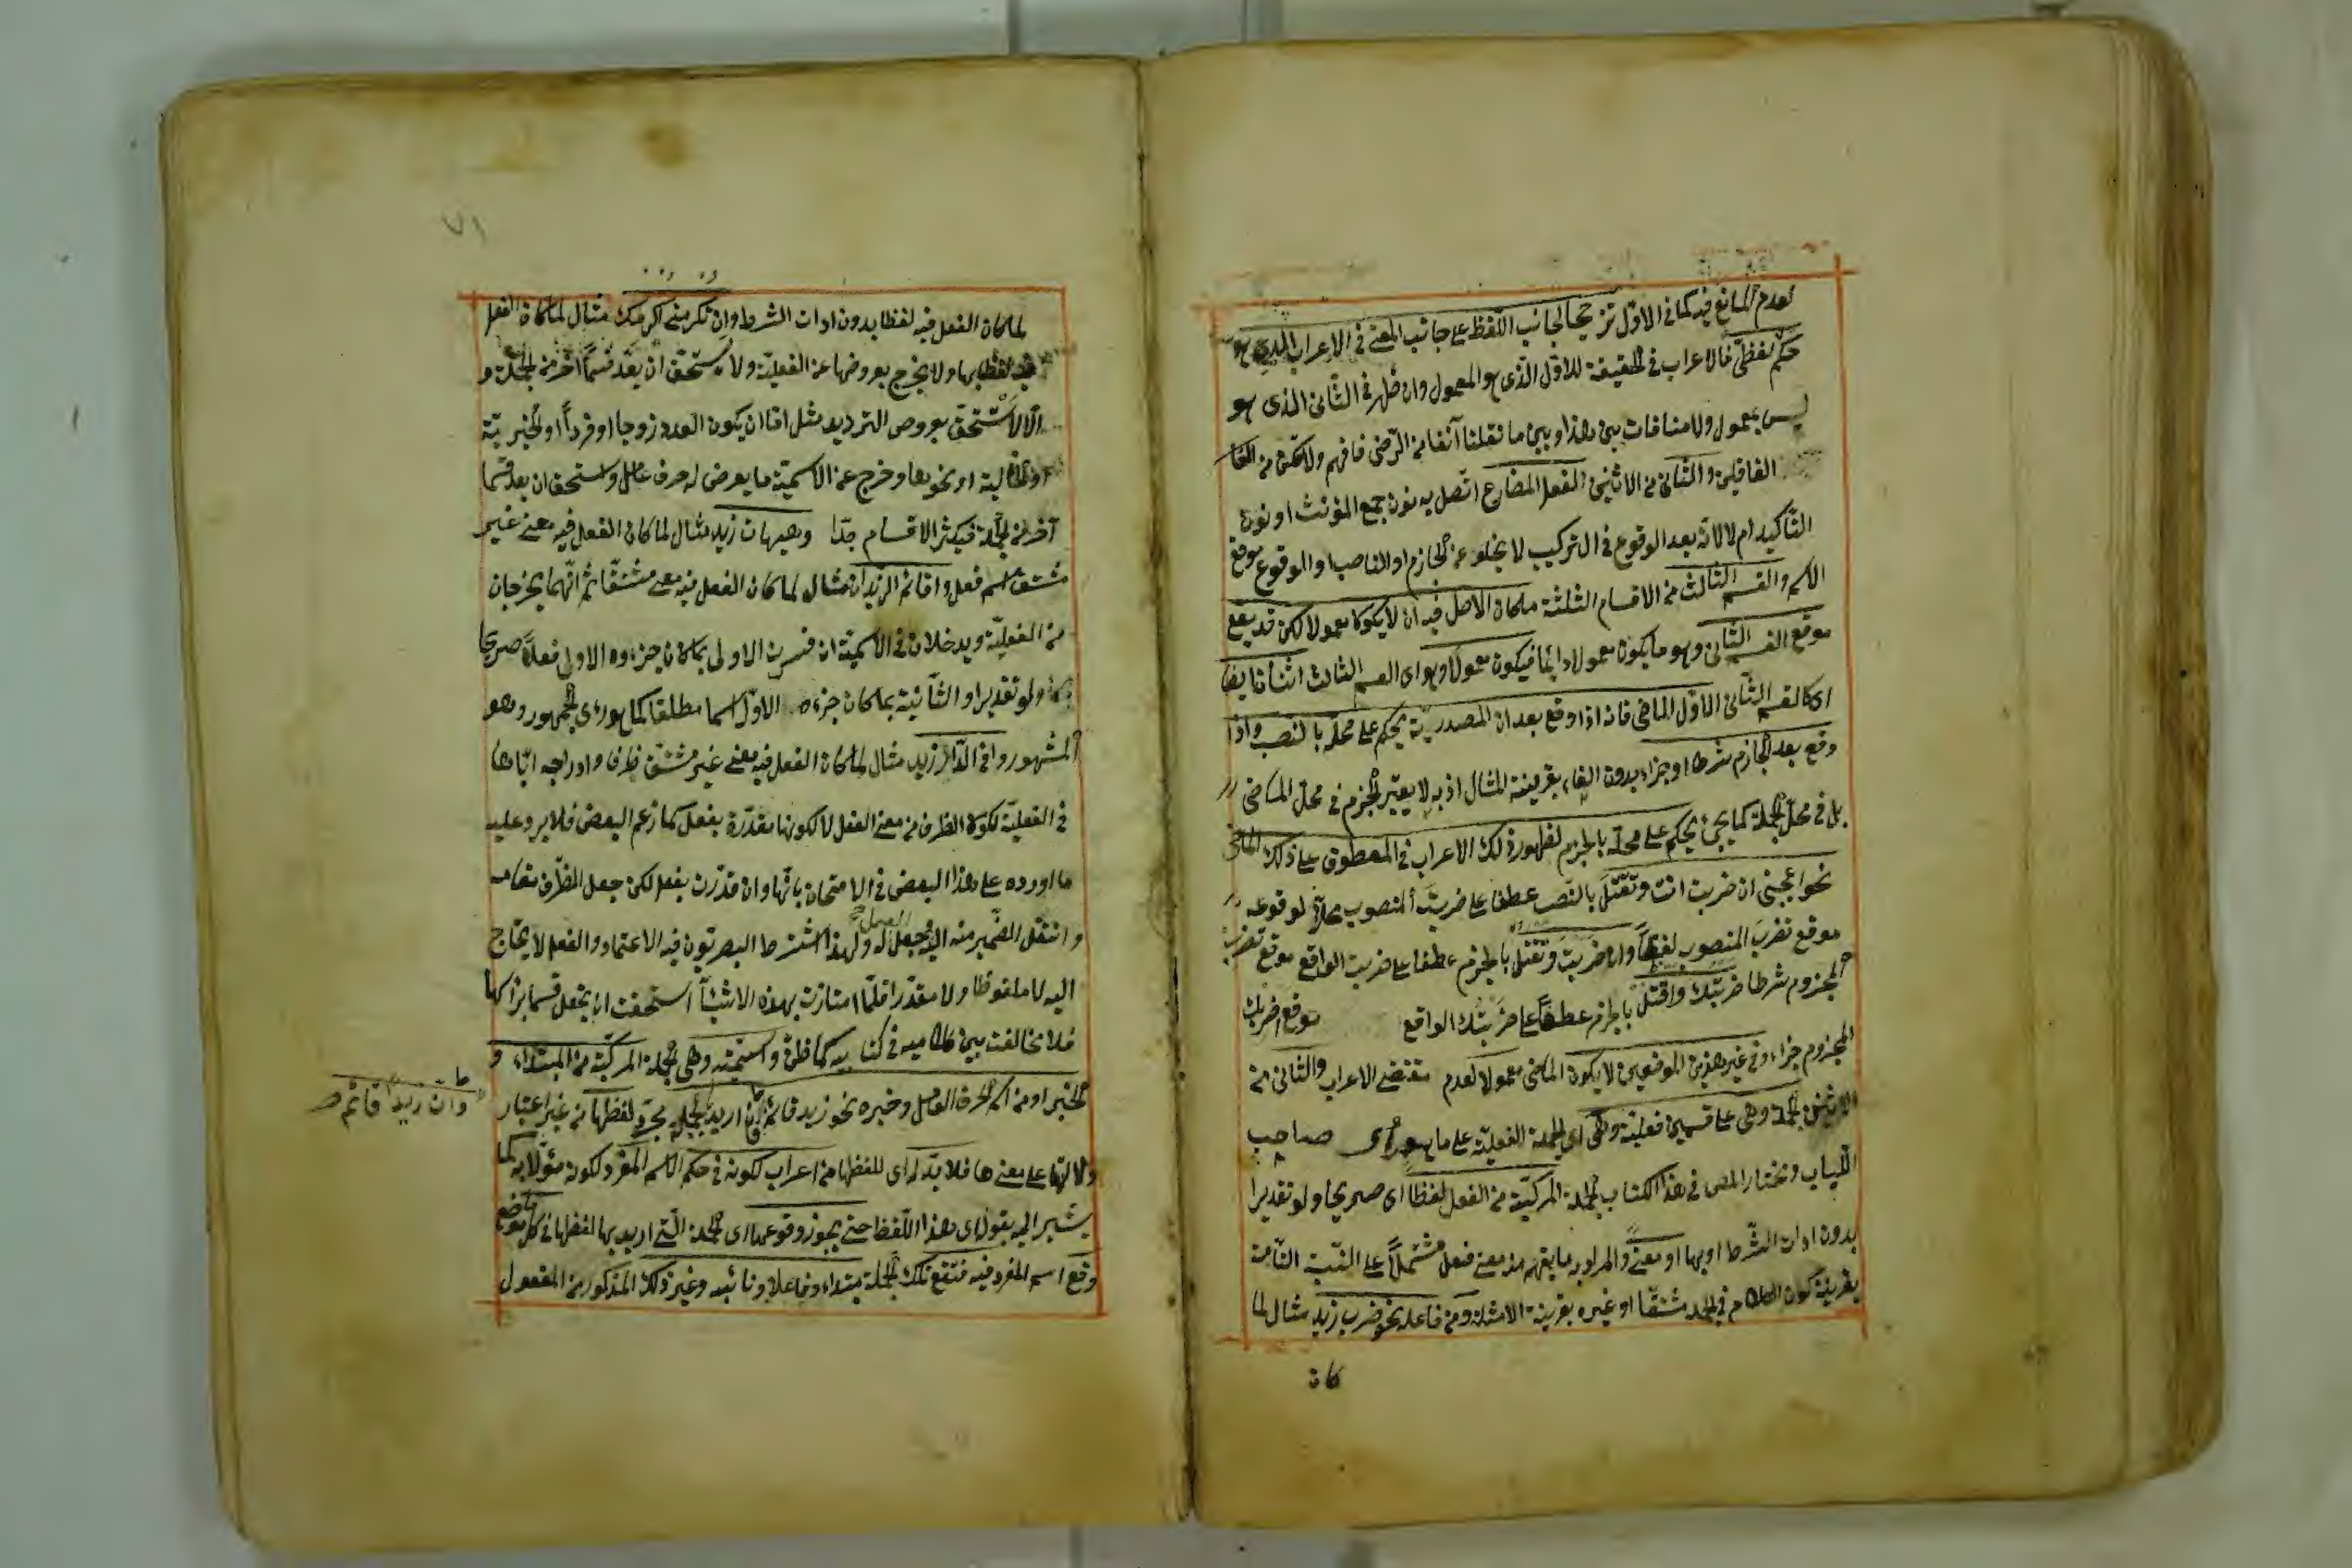 لعدم المانع فيه كما في الاول ترجيحا لجانب اللفظ على جانب المعنى في الاعراب الذي هو
حكم لفظي فالاعراب في الحقيقة للاول الذى هو المعمول وان ظهر في الثاني الذى هو
ليس بمعمول ولا منافات بين هذا وبين ما نقلنا آنفا من الرضى فافهم ولا تكن من
الغافلين والثاني من الاثنين الفعل المضارع اتصل به نون جمع المؤنث او نون
التأكيد ام لا لانه بعد الوقوع في التركيب لا يخلو عن الجازم او الناصب او الوقوع موقع
الاسم والقسم الثالث من الاقسام الثلثة ما كان الاصل فيه ان لا يكون معمولا لكن قد يقع
موقع القسم الثاني وهو ما يكون معمولا دائما فيكون معمولا وهو اى القسم الثالث اثنان ايضا
اى كالقسم الثاني الاول الماضي فانه اذا وقع بعد ان المصدرية يحكم على محله بالنصب واذا
وقع بعد الجازم شرطا او جزاء بدون الفاء بقرينة المثال اذ به لا يعتبر الجزم في محل الماضي
بل في محل الجملة كما يجئ يحكم على محله بالجزم لظهور ذلك الاعراب في المعطوف على ذلك الماضى
نحو اعجبني ان ضربت انت وتقتل بالنصب عطفا على ضربت المنصوب محلا لوقوعه
موقع تضرب المنصوب لفظا وان ضربت وتقتل بالجزم عطفا على ضربت الواقع موقع تضرب
المجزوم شرطا ضربتك واقتل بالجزم عطفا على ضربتك الواقع موقع اضربك
المجزوم جزاء وفي غير هذين الموضعين لا يكون الماضي معمولا لعدم مقتضى الاعراب والثاني من
الاثنين الجملة وهى على قسمين فعلية وهى اى الجملة الفعلية على ما هو رأى صاحب
اللباب ومختار المص في هذا الكتاب الجملة المركبة من الفعل لفظا اى صريحا ولو تقديرا
بدون ادات الشرط او بها او معنى والمراد به ما يفهم منه معنى فعل مشتملا على النسبة التامة
بقرينة كون الكلام في الجملة مشتقا او غيره بقرينة الامثلة ومن فاعله نحو ضرب زيد مثال لما
كان
٧١
لما كان الفعل فيه لفظا بدون ادات الشرط وان تكرمني اكرمك مثال لما كان الفعل
فيه لفظا بها ولا يخرج بعروضها عن الفعلية ولا يستحق ان يعد قسما آخر من الجملة و
الا لاستحق بعروض الترديد مثل اما ان يكون العدد زوجا او فردا او الخبرية
او الحالية او نحوها وخرج عن الاسمية ما يعرض له حرف عامل واستحق ان يعد قسما
آخر من الجملة فيكثر الاقسام جدا وهيهات زيد مثال لما كان الفعل فيه معنى غير
مشتق اسم فعل واقائم الزيدان مثال لما كان الفعل فيه معنى مشتقا ثم انهما يخرجان
من الفعلية ويدخلان في الاسمية ان فسرت الاولى بما كان جزءه الاول فعلا صريحا
ولو تقديرا والثانية بما كان جزءه الاول اسما مطلقا كما هو رأى الجمهور وهو
المشهور وافي الدار زيد مثال لما كان الفعل فيه معنى غير مشتق ظرفا وادراجه اياها
في الفعلية لكون الظرف من معنى الفعل لا لكونها مقدرة بفعل كما زعم البعض فلا يرد عليه
ما اورده على هذا البعض في الامتحان بانها وان قدرت بفعل لكن جعل الظرف مقامه
وانتقل الضمير منه اليه وجعل العمل له ولهذا اشترط البصريون فيه الاعتماد والفعل لا يحتاج
اليه لا ملفوظا ولا مقدرا فلما امتازت بهذه الاشياء استحقت ان يجعل قسما برأسها
فلا تخالفت بين كلاميه في كتابيه كما ظن واسمية وهى الجملة المركبة من المبتداء و
الخبر او من اسم الحرف العامل وخبره نحو زيد قائم فان اريد بالجملة مجرد لفظها من غير اعتبار
وان زيدا قائم صح
دلالتها على معنى ها فلا بد له اى للفظها من اعراب لكونه في حكم الاسم المفرد لكونه مؤلا به كما
يشير اليه بقوله اى هذا اللفظ حتى يجوز وقوعها اى الجملة التى اريد بها لفظها في كل موضع
وقع اسم المفرد فيه فتقع تلك الجملة مبتداء وفاعلا ونائبه وغير ذلك المذكور من المفعول